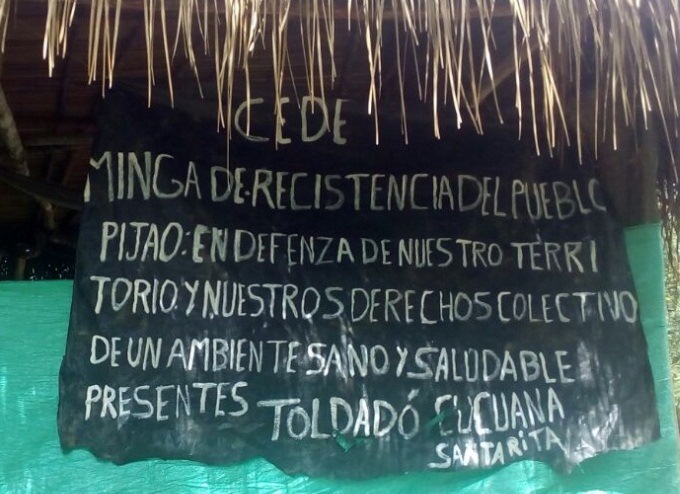 CEDE
MINGA DE RECISTENCIA DEL PUEBLO
PIJAO: EN DEFENZA DE NUESTRO TERRI
TORIO Y NUESTROS DERECHOS COLECTIVO
DE UN AMBIENTE SANO Y SALUDABLE
PRESENTES TOLDADÓ CUCUANA
SANTARITA